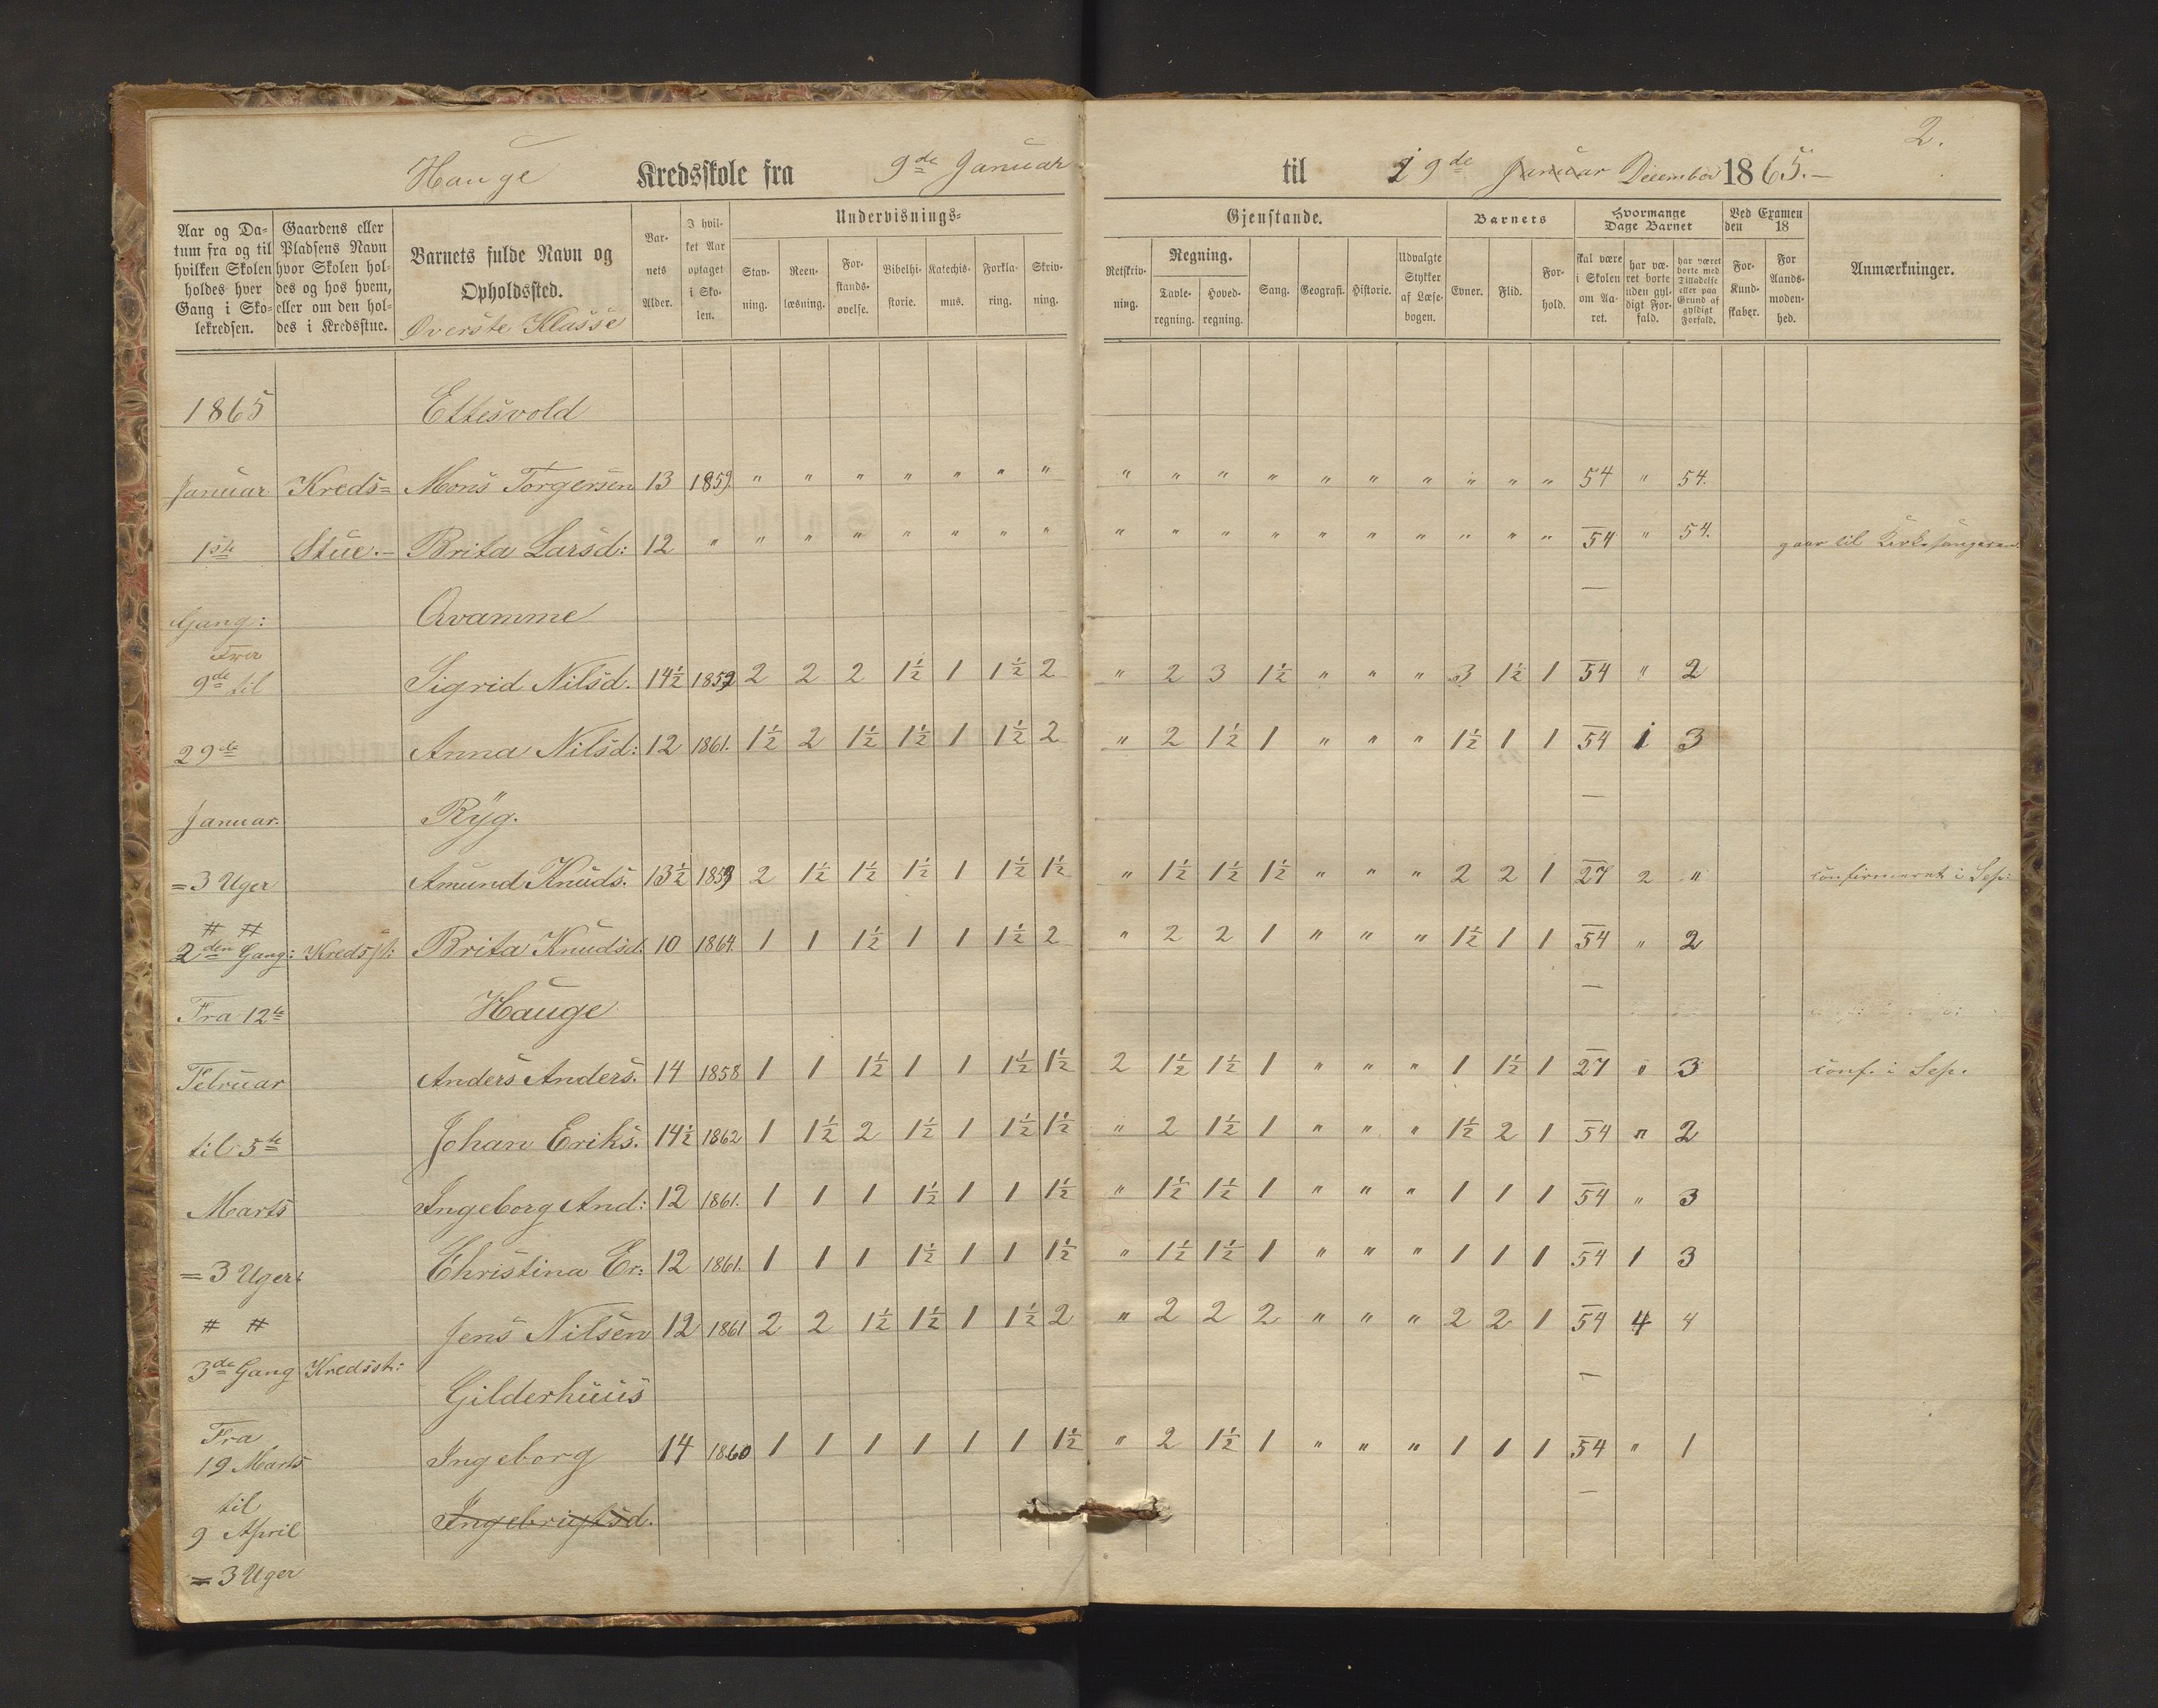 2.
Hauge Kredsskole fra 9de Januar til 19de Januar December 1865.-
Aar og Da= tum fra og til hvilken Skolen holdes hver Gang i Sko= lekredsen.
Gaardens eller Pladsens Navn hvor Skolen hol= des og hos hvem, eller om den hol= des i Kredsstue.
Barnets fulde Navn og Opholdssted.
Överste Klasse
Bar- nets Alder.
I hvil- ket Aar optaget i Sko- len.
Undervisnings= Gjenstande.
Stav- ning.
Reen- læsning.
For- stands- øvelse.
Bibelhi- storie.
Katechis- mus.
Forkla- ring.
Skriv- ning.
Retskriv- ning.
Regning.
Tavle- regning.
Hoved- regning.
Sang.
Geografi.
Historie.
Udvalgte Stykker af Læse- bogen.
Barnets
Evner.
Flid.
For- hold.
Hvormange Dage Barnet
skal være i Skolen om Aa- ret.
har væ- ret borte uden gyl- digt For- fald.
har været borte med Tilladelse eller paa Grund af gyldigt Forfald.
Ved Examen den 18
For- Kund- skaber.
For Aands- moden- hed.
Anmærkninger.
1865 Ettesvold
Januar Kreds= Mons Torgersen 13 1859. " " " " " " " " " " " " " " " " " 54 " 54.
1ste Stue.- Brita Larsd: 12 " " " " " " " " " " " " " " " " " " 54 " 54. gaar til Kirkesangeren
Gang: Qvamme
Fra
9de til Sigrid Nilsd. 14½ 1859 2 2 2 1½ 1 1½ 2 " 2 3 1½ " " " 3 1½ 1 54 " 2
29de Anna Nilsd: 12 1861. 1½ 2 1½ 1½ 1 1½ 2 " 2 1½ 1 " " " 1½ 1 1 54 1 3
Januar. Rÿg.
=3 Uger Amund Knuds. 13½ 1859 2 1½ 1½ 1½ 1 1½ 1½ " 1½ 1½ 1½ " " " 2 2 1 27 2 " confirmeret i Sep:
# #
2den Gang: Kredsst: Brita Knudsd. 10 1864. 1 1 1½ 1 1 1½ 2 " 2 2 1 " " " 1½ 1 1 54 " 2
Fra 12te Hauge
Februar Anders Anders. 14 1858 1 1 1½ 1 1 1½ 1½ 2 1½ 1½ 1 " " " 1 1½ 1 27 " 3 conf. i Sep.
til 5te Johan Eriks. 14½ 1862 1 1½ 2 1½ 1 1½ 1½ " 2 1½ 1 " " " 1½ 2 1 54 " 2
Marts Ingeborg And: 12 1861. 1 1 1 1½ 1 1 1½ " 1½ 1½ 1 " " " 1 1 1 54 " 3
=3 Uger: Christina Er: 12 1861. 1 1 1 1½ 1 1 1½ " 1½ 1½ 1 " " " 1 1 1 54 1 3
# # Jens Nilsen 12 1861 2 2 1½ 1½ 1 1½ 2 " 2 2 2 " " " 2 2 1 54 4 4
3de Gang Kredsst:
Gilderhuus
Fra
19 Marts Ingeborg 14 1860 1 1 1 1 1 1 1½ " 2 1½ 1 " " " 1 1 1 54 " 1
til
9 April Ingebrigtsd.
=3 Uger